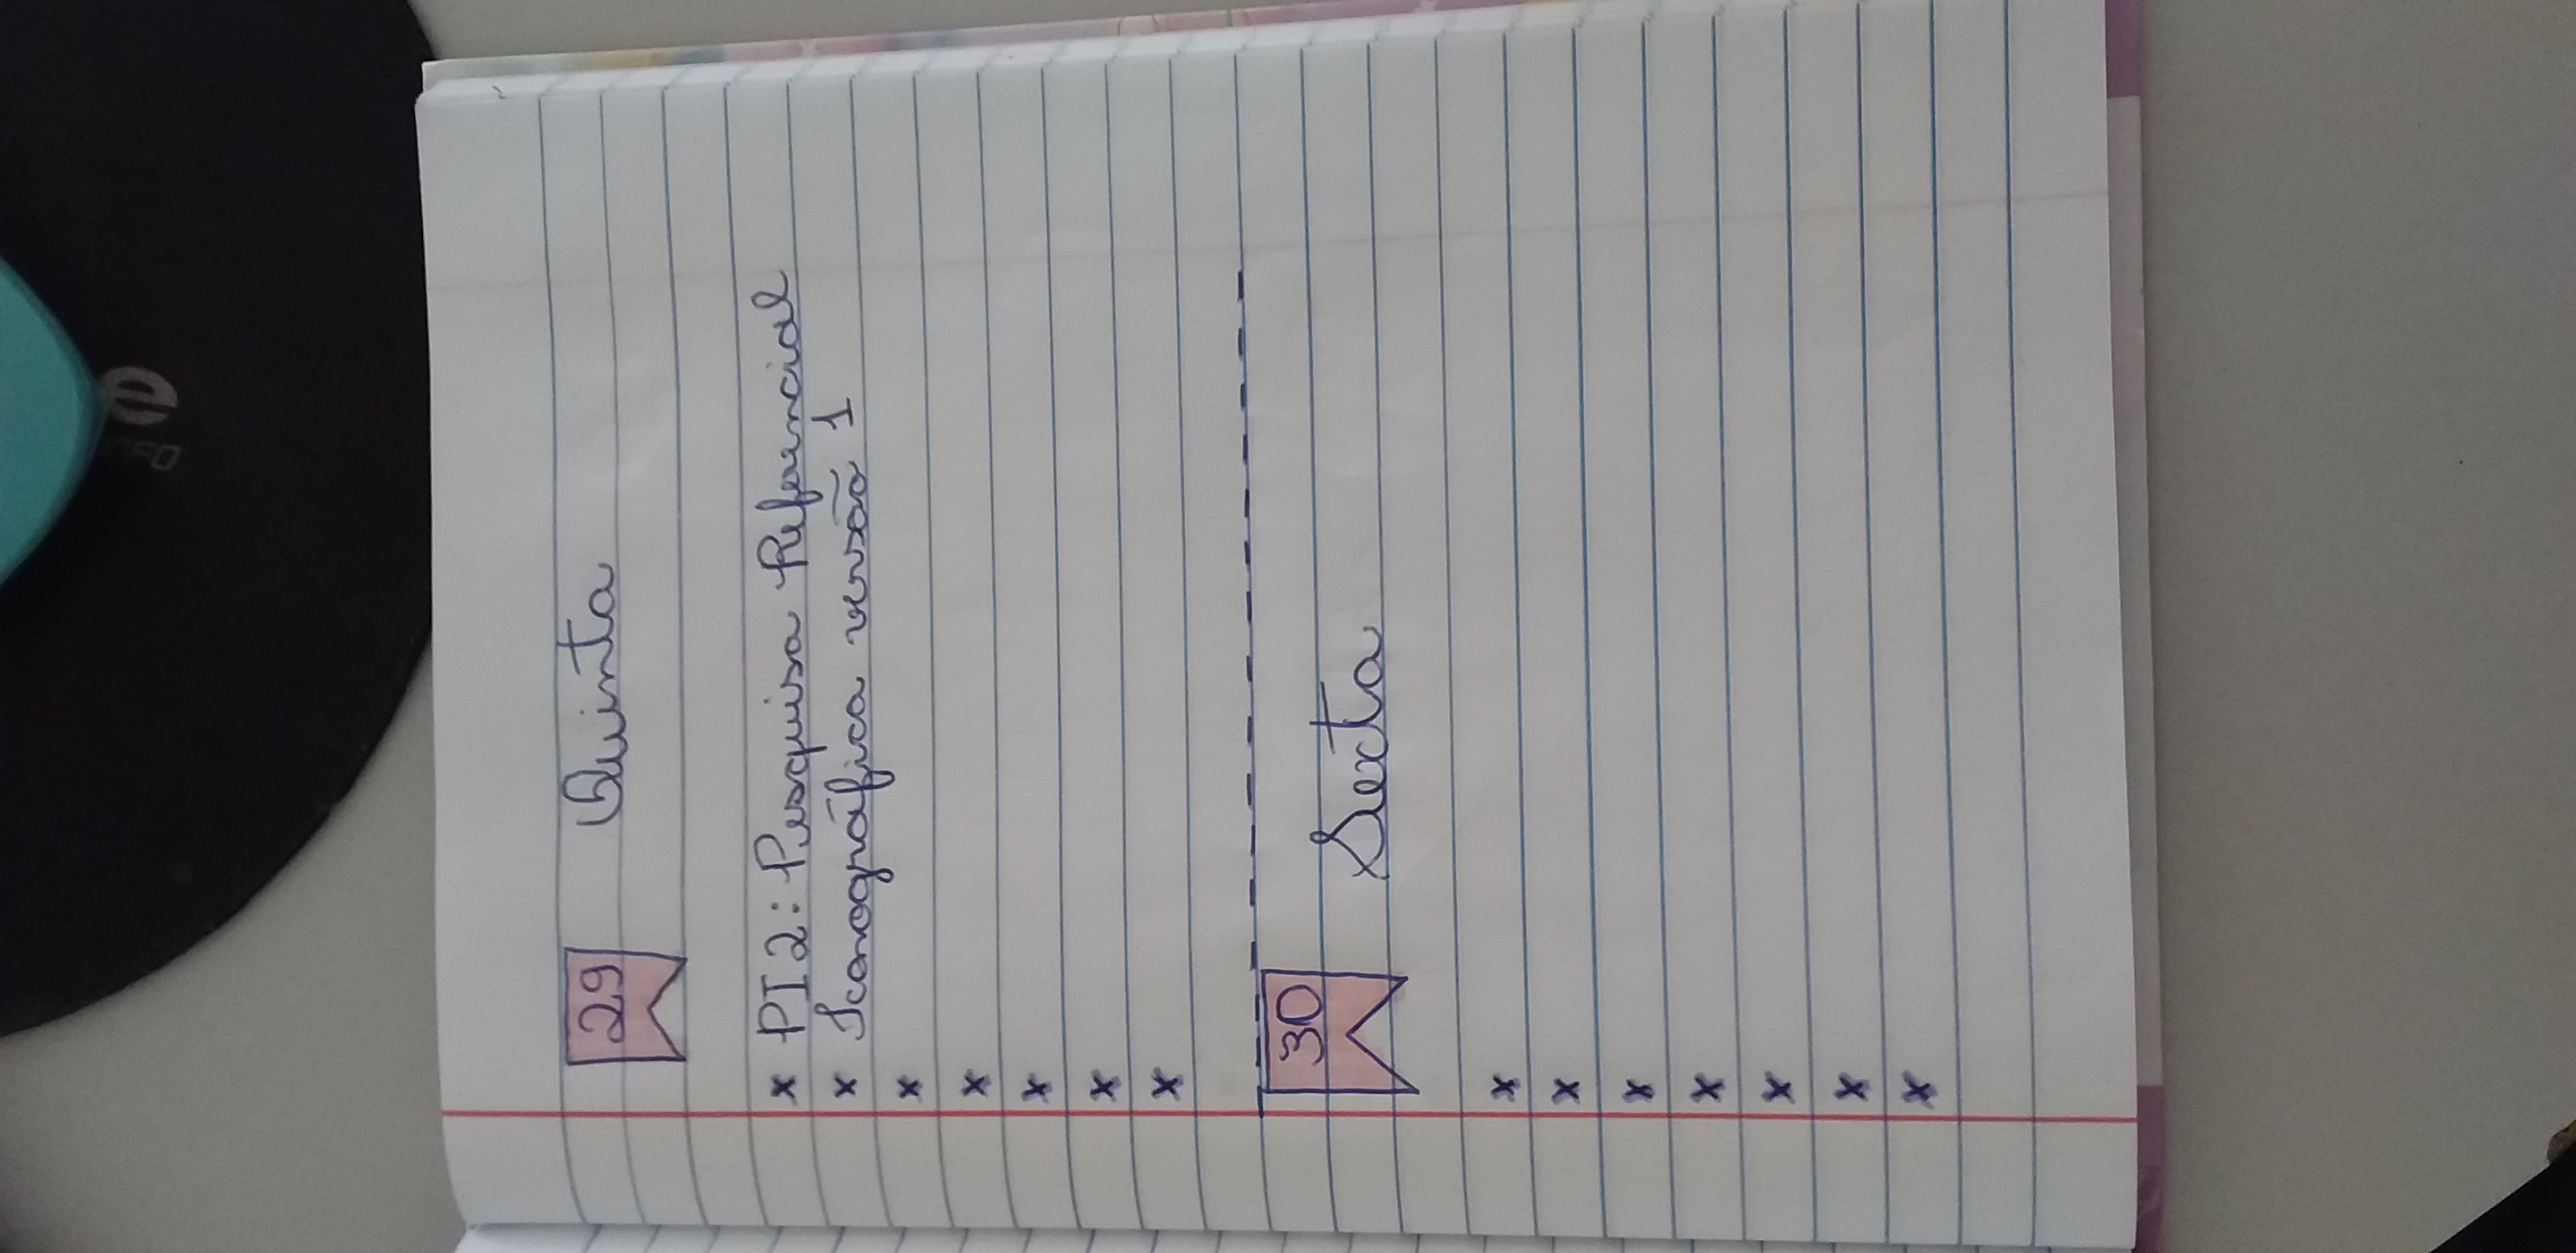 29 Quinta
x PI2: Pesquisa Referencial
x Iconográfica versão 1
x
x
x
x
x
30 Sexta
x
x
x
x
x
x
x